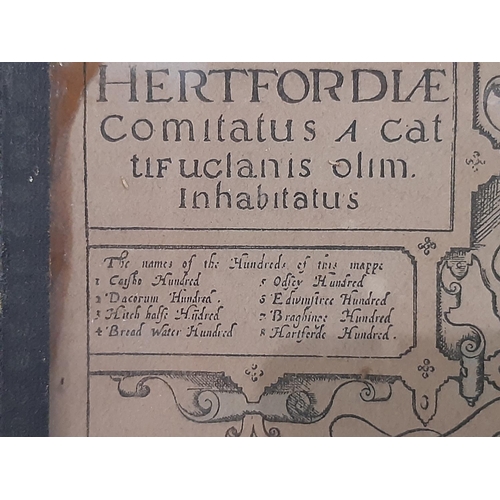 HERTFORDIÆ
Comitatus A Cat
tifuclanis olim.
Inhabitatus
The names of the Hundreds of this mappe
1 Caisho Hundred
2 Dacorum Hundred.
3 Hitch halfe Hūdred
4 Broad Water Hundred
5 Odsey Hundred
6 Edwinstree Hundred
7 Braghinge Hundred
8 Hartforde Hundred.